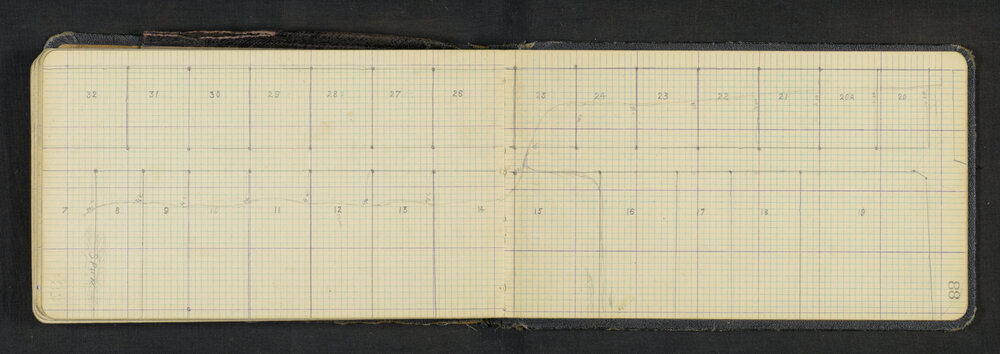 32 31 30 29 28 27 26 25 24 23 22 21 20A 20
7 8 9 10 11 12 13 14 15 16 17 18 19
88